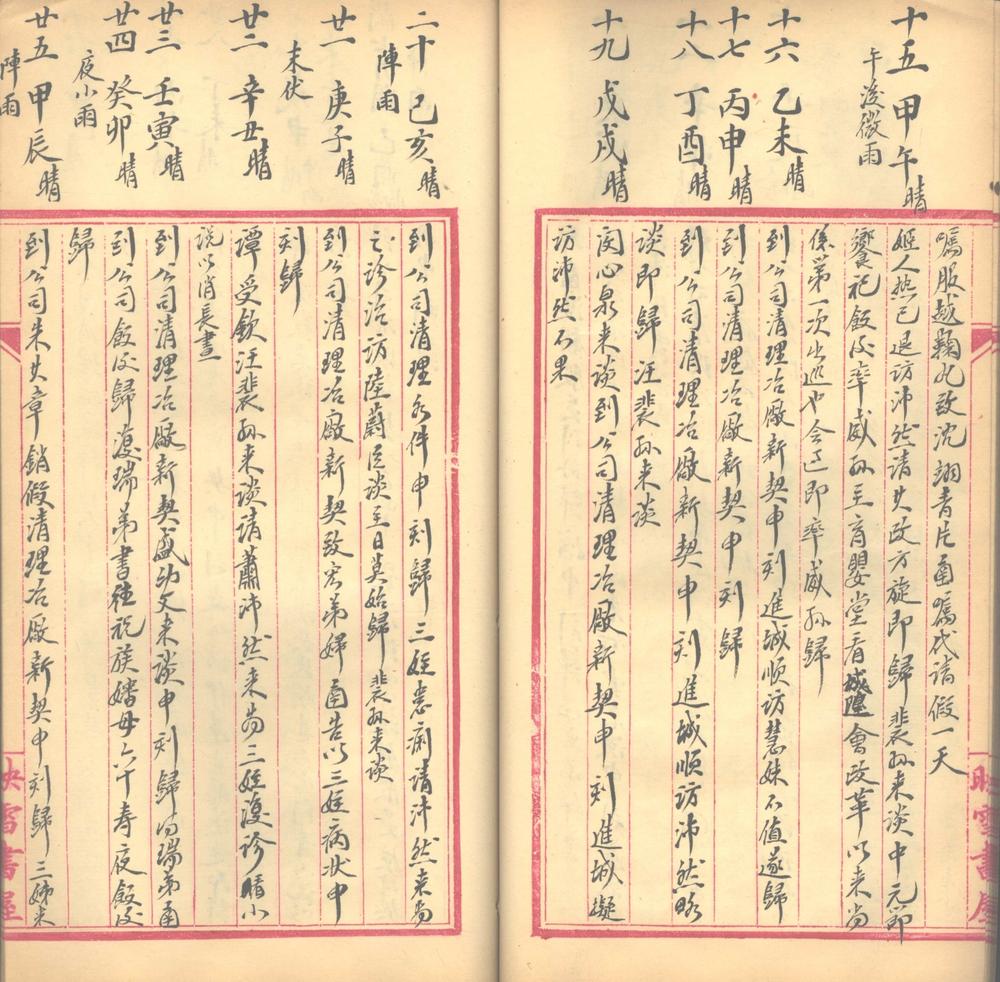 囑服越鞠丸致沈翊青片函囑代請假一天
十五 甲午 晴
午後微雨
姬人熱已退訪沛然請其改方旋即歸 裴孫來談中元節
饗祀飯後率威孫至育嬰堂看城隍會改革以來尚
係第一次出巡也會過即率威孫歸
十六 乙未 晴
到公司清理冶廠新契申刻進城順訪慧妹不值遂歸
十七 丙申 晴
到公司清理冶廠新契申刻歸
十八 丁酉 晴
到公司清理冶廠新契申刻進城順訪沛然略
談即歸 汪裴孫來談
十九 戊戌 晴
閔心泉來談到公司清理冶廠新契申刻進城擬
訪沛然不果
二十 己亥 晴
陣雨
到公司清理各件申刻歸 三姪患痢請沛然來為
之診治訪陸蔚臣談至日莫始歸 裴孫來談
廿一 庚子 晴
末伏
到公司清理冶廠新契致宏弟婦函告以三姪病狀申
刻歸
廿二 辛丑 晴
譚受欽汪裴孫來談請蕭沛然來為三姪復診 睛小
說以消長晝
廿三 壬寅 晴
到公司清理冶廠新契孟幼文來談申刻歸得瑞弟函
廿四 癸卯 晴
夜小雨
到公司飯後歸復瑞弟書往祝族嬸母六十壽夜飯後
歸
廿五 甲辰 晴
陣雨
到公司朱其章銷假清理冶廠新契申刻歸 三姊來
映雪書屋
映雪書屋